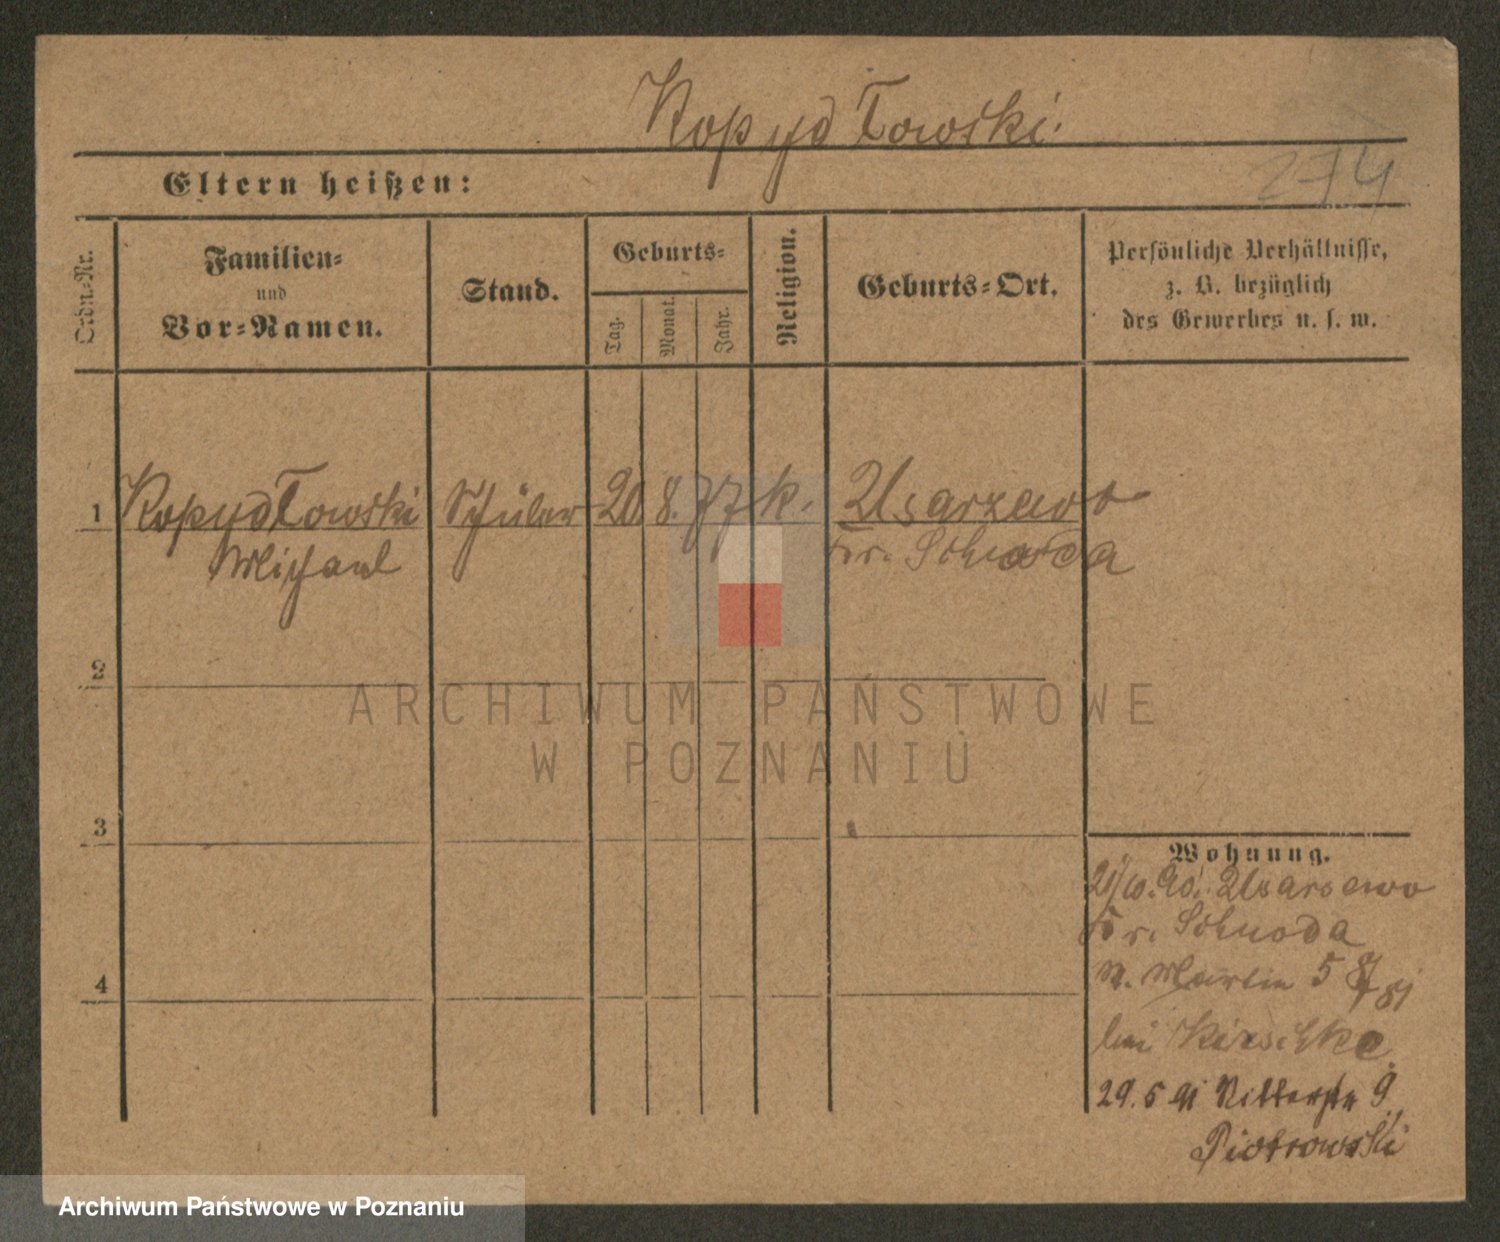 Kopydłowski
Eltern heißen:
274
Ordn.-Nr.
Familien-
und
Vor-Namen.
Stand.
Geburts-
Tag.
Monat.
Jahr.
Religion.
Geburts-Ort.
Persönliche Verhältnisse,
z. B. bezüglich
des Gewerbes u. s. w.
1 Kopydłowski Schüler 20. 8. 77 k. Usarzewo
Michael Kr. Schroda
2
ARCHIWUM PAŃSTWOWE
W POZNANIU
3
Wohnung.
90. Usarzewo
Kr. Schroda
4
St. Martin 5
bei Kirschke
29. 5 91 Ritterstr 9
Piotrowski
Archiwum Państwowe w Poznaniu